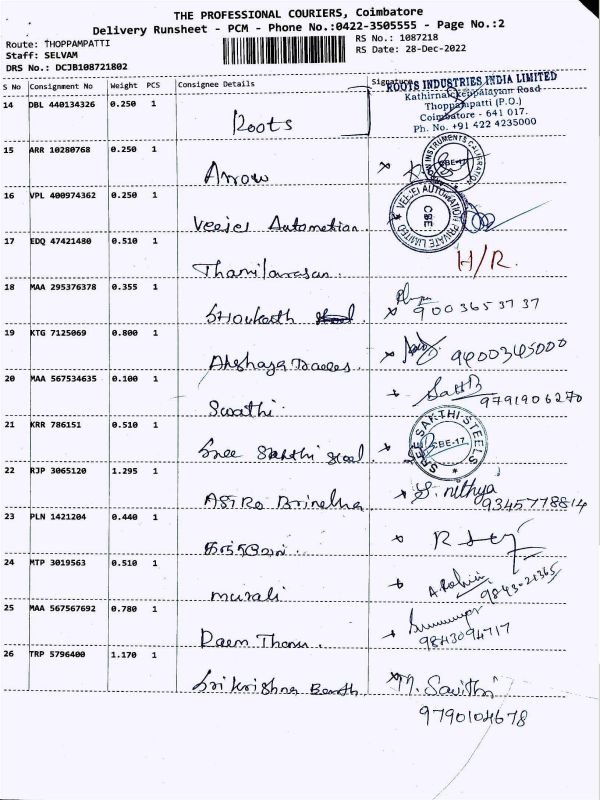 THE PROFESSIONAL COURIERS, Coimbatore
Delivery Runsheet - PCM - Phone No.:0422-3505555 - Page No.:2
Route: THOPPAMPATTI
RS No.: 1087218
Staff: SELVAM
RS Date: 28-Dec-2022
DRS No.: DCJB108721802
S No Consignment No Weight PCS Consignee Details Signature
ROOTS INDUSTRIES INDIA LIMITED
Kathirnaickenpalayam Road
Thoppampatti (P.O.)
Coimbatore - 641 017.
Ph. No. +91 422 4235000
14 DBL 440134326 0.250 1
Roots
15 ARR 10280768 0.250 1
Arrow
INSTRUMENTS CALIBRATION
CBE-17
16 VPL 400974362 0.250 1
Veejei Automation
VEEJEI AUTOMATION PRIVATE LIMITED
CBE
17 EDQ 47421480 0.510 1
Thamilarasan.
H/R.
18 MAA 295376378 0.355 1
9003653737
19 KTG 7125069 0.800 1
9400345000
20 MAA 567534635 0.100 1
Swathi.
9791906270
21 KRR 786151 0.510 1
Sree Sakthi Steel
SREE SAKTHI STEELS
CBE-17
22 RJP 3065120 1.295 1
S. nithya
9345778814
23 PLN 1421204 0.440 1
24 MTP 3019563 0.510 1
murali
A. Rohini
98430-21365
25 MAA 567567692 0.780 1
9843094717
26 TRP 5796400 1.170 1
Sri Krishna
M. Savithri
9790104678